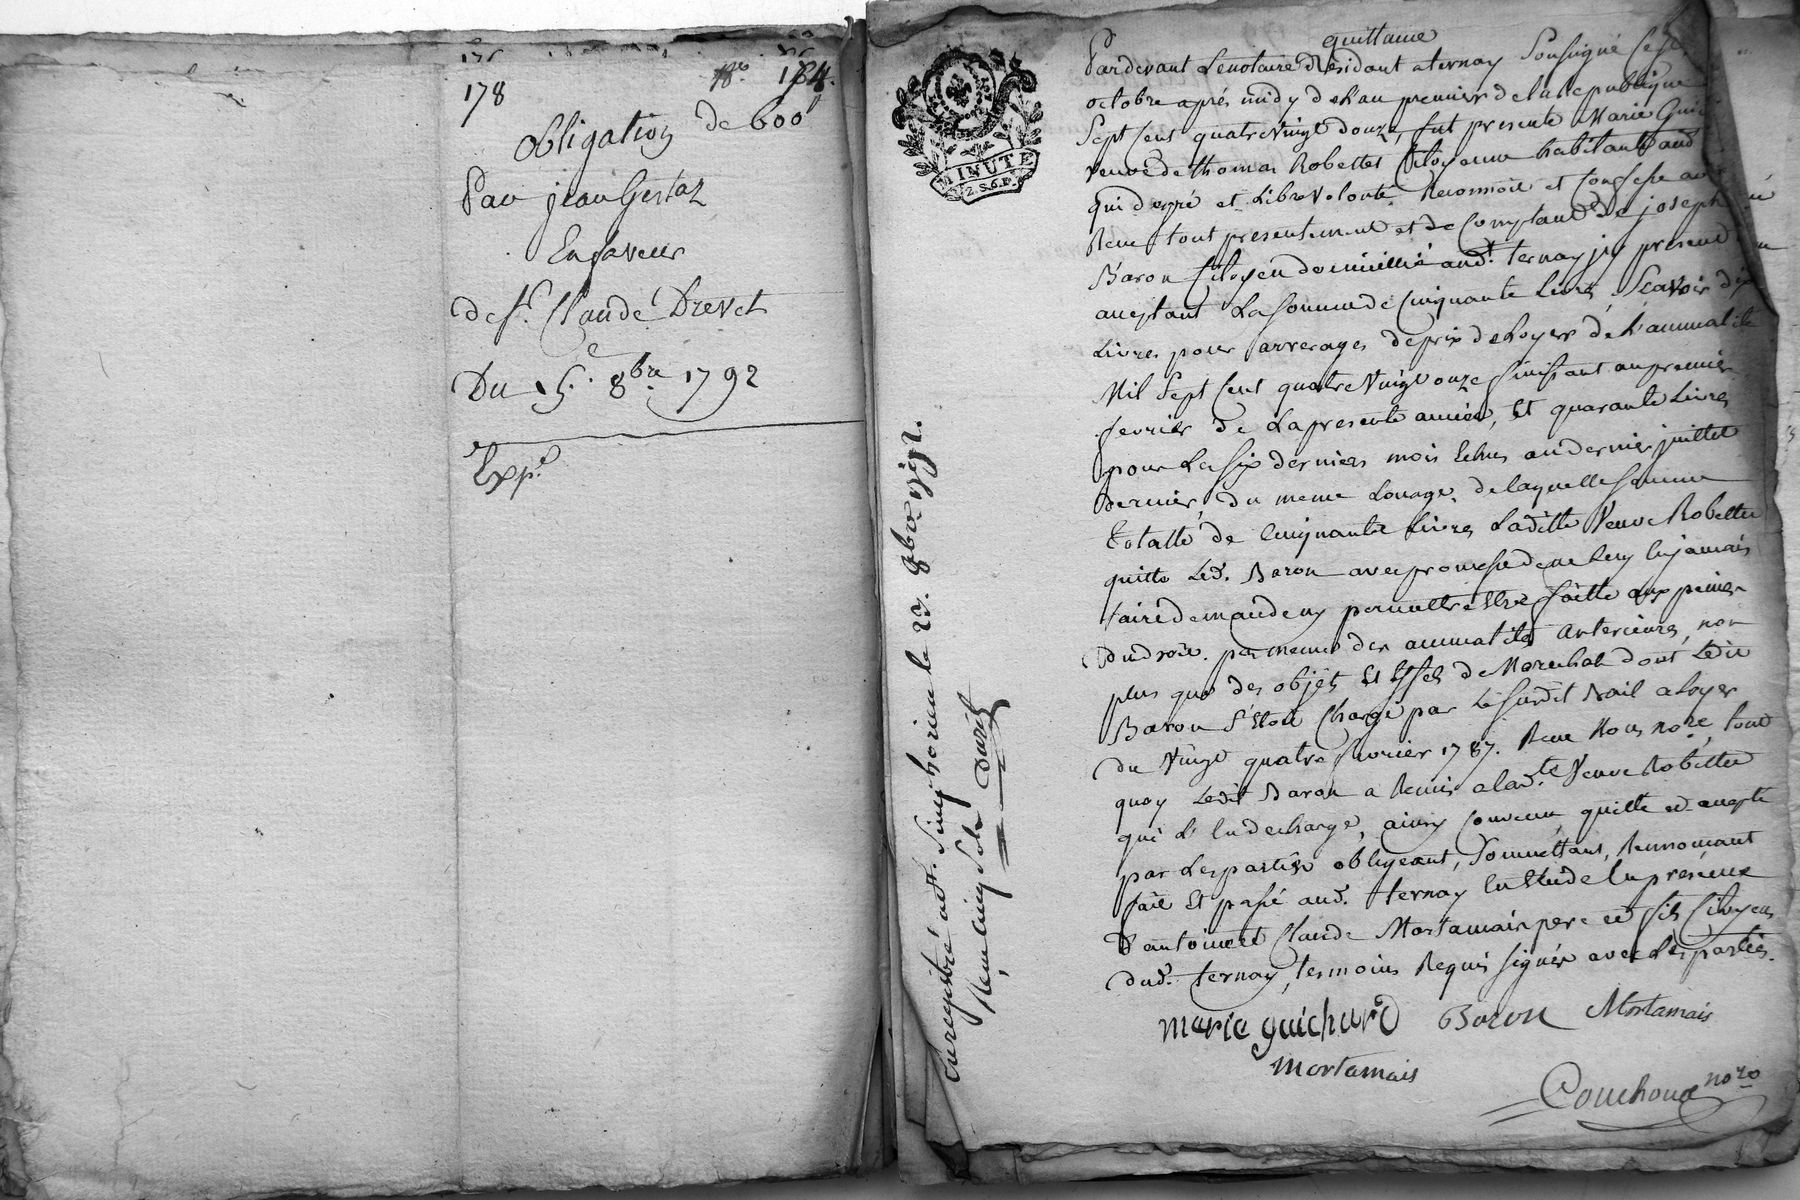 178
18e 184.
Obligation de 600#
Par jean Gestaz
En faveur
de sr. Claude Drevet
Du 15. 8bre 1792
Expé
MINUTE
2. S. 6. D.
quittance
Pardevant Le notaire Résidant a ternay Soussigné
octobre aprés midy de L'an premier de la Republique
Sept Cent quatre Vingt douze, fut presente Marie
veuve de thomas Robettet Citoyenne habitante aud
qui de gré et Libre Volonté Reconnoit et Confesse
Reçu tout presentement et de Comptant de joseph
Baron Citoyen domicillié aud. ternay jcy present
aceptant La Somme de Cinquante Livres, Scavoir dix
Livres pour arrerages de prix de Loyer de L'annualité
Mil Sept Cent quatre Vingt onze finissant au premier
fevrier de La presente année, Et quarante Livres
pour Les Six derniers mois Echus au dernier juillet
dernier, du meme Louage, de laquelle Somme
totalle de Cinquante Livres Laditte Veuve Robettet
quitte Led. Baron avec promesse de ne Luy En jamais
faire demande ny permettre Estre faitte aux peines
du droit. pas meme des annualités anterieures, non
plus que des objets Et Effets de Marechal dont Ledit
Baron S'Etoit Chargé par Le Susdit Bail a Loyer
du Vingt quatre fevrier 1787. Reçu Nous nore, tout
quoy Ledit Baron a Remis a lad.te Veuve Robettet
qui L'En decharge, ainsy Convenu, quitté et accepté
par Les parties obligeant, Soumettant, Renonçant
fait Et passé aud. ternay En Etude En presence
d'antoine et Claude Mortamais pere et fils Citoyens
dud. ternay, temoins Requis signés avec Les parties.
marie guichard Baron Mortamais
mortamais
Couchoud nore
Enregistré a St. Simphorien le 22. 8bre 1792.
Reçu cinq sols